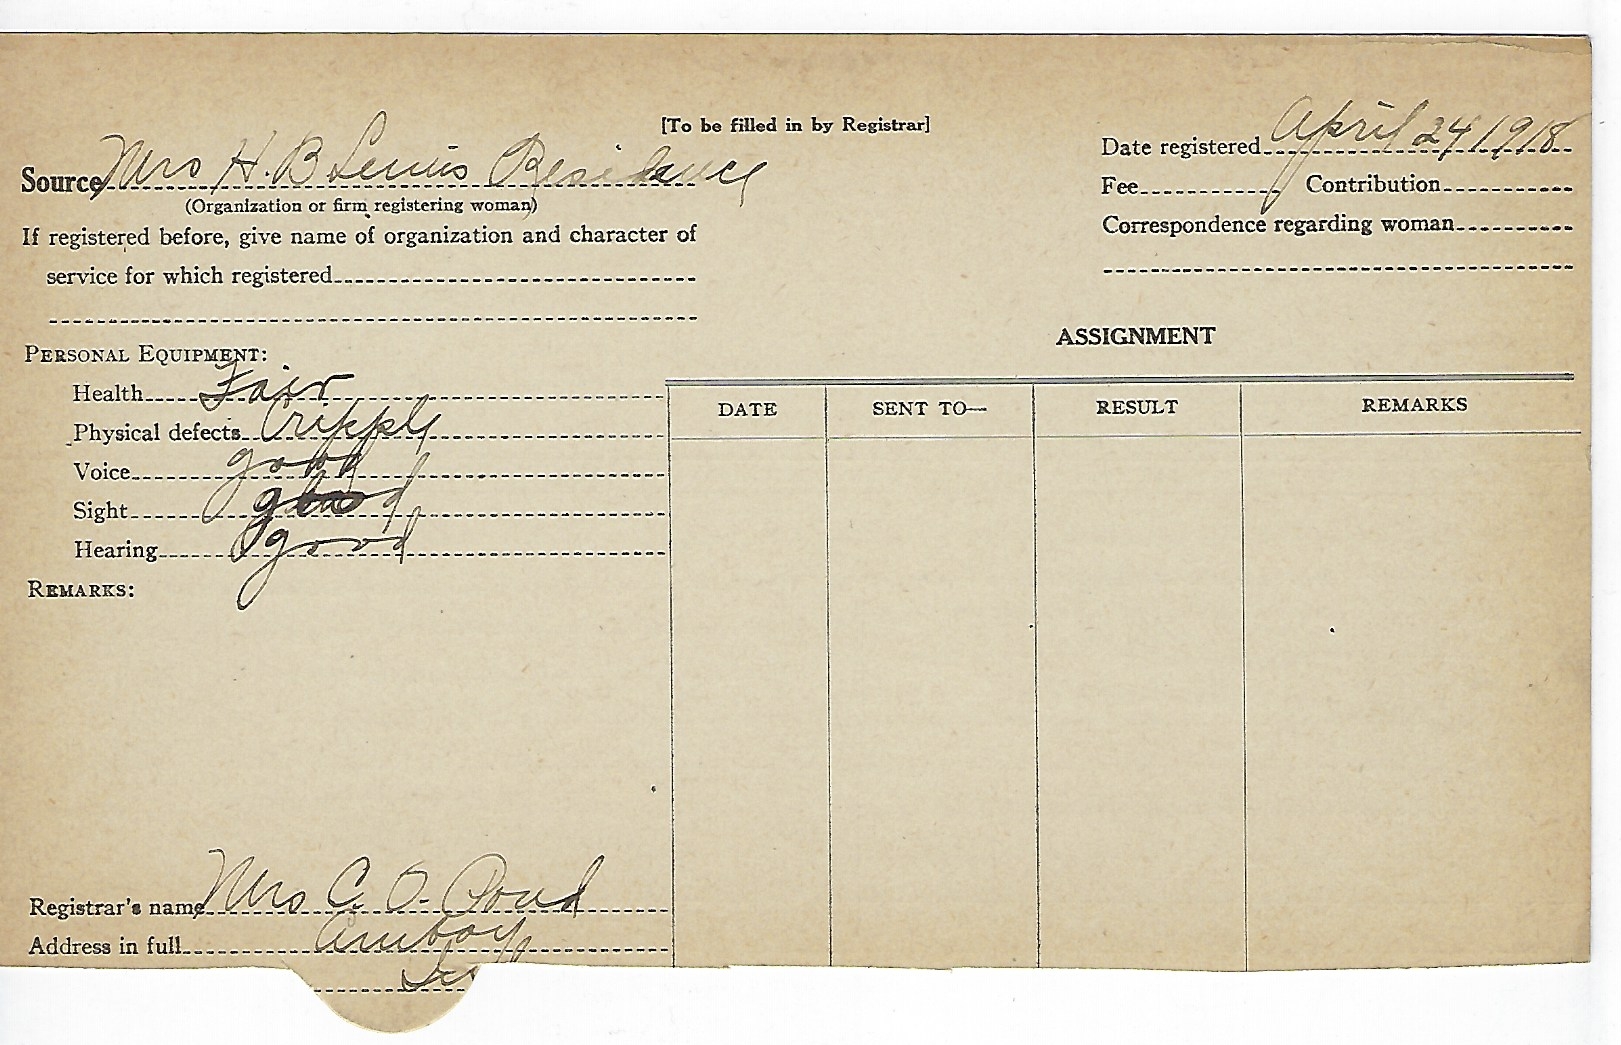 [To be filled in by Registrar]
Date registered April 24 1918
Source Mrs H. B Lewis Residence
(Organization or firm registering woman)
Fee Contribution
If registered before, give name of organization and character of
Correspondence regarding woman
service for which registered
ASSIGNMENT
PERSONAL EQUIPMENT:
Health Fair
DATE SENT TO— RESULT REMARKS
Physical defects Cripply
Voice good
Sight good
Hearing good
REMARKS:
Registrar's name Mrs C. O. Pond
Address in full Amboy